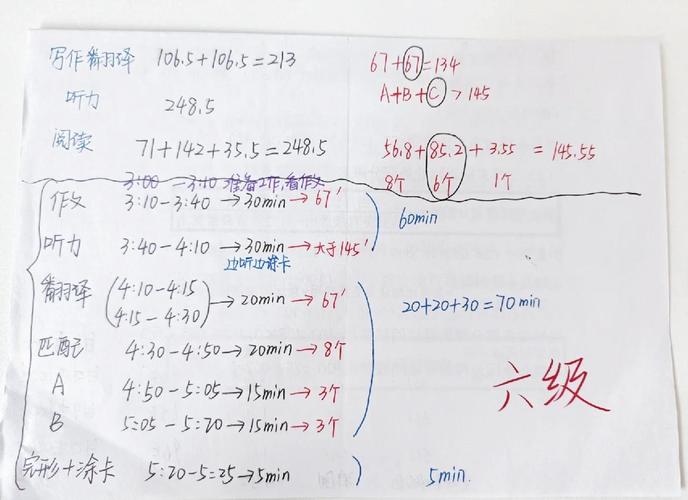 写作翻译 106.5+106.5=213 67+67=134
听力 248.5 A+B+C>145
阅读 71+142+35.5=248.5 56.8+85.2+3.55=145.55
8个 6个 1个
3:00—3:10 准备工作,看作文
作文 3:10-3:40→30min→67'
60min
听力 3:40-4:10→30min→大于145'
边听边涂卡
翻译 (4:10-4:15
4:15-4:30)→20min→67' 20+20+30=70min
匹配 4:30-4:50→20min→8个
A 4:50-5:05→15min→3个
六级
B 5:05-5:20→15min→3个
完形+涂卡 5:20-5:25→5min 5min.